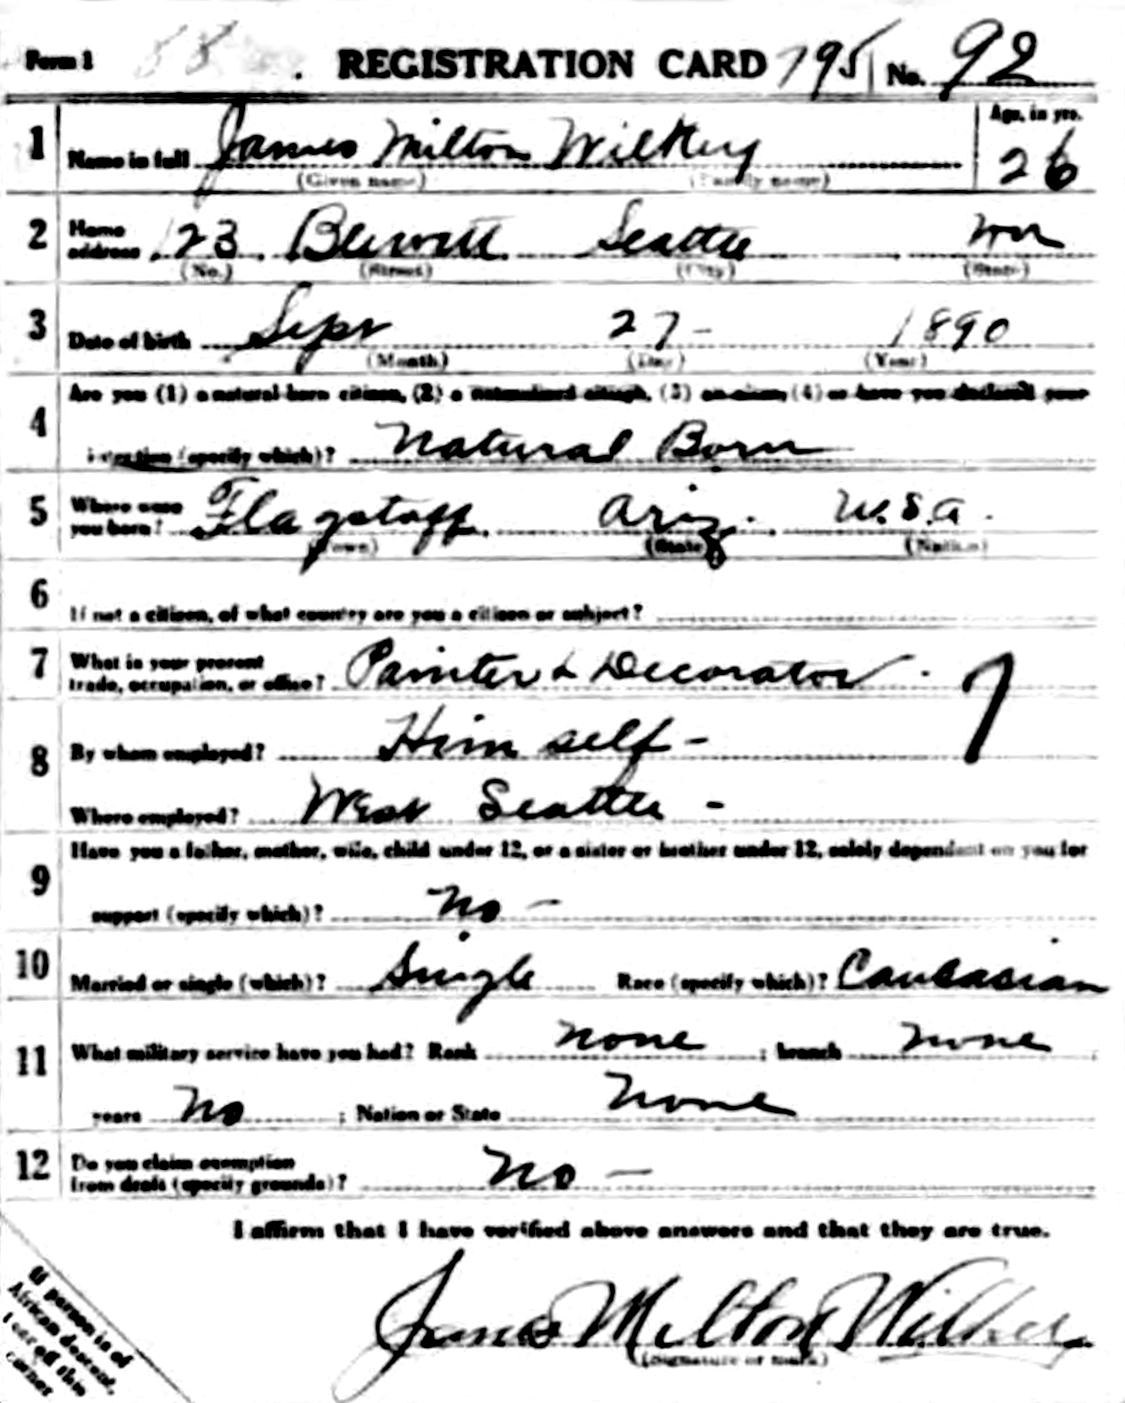 Form 1 REGISTRATION CARD 795 No. 92
1 Name in full James Milton Wilkey Age, in yrs. 26
(Given name) (Family name)
2 Home address 123 Seattle Wn
(No.) (Street) (City) (State)
3 Date of birth Sept 27 - 1890
(Month) (Day) (Year)
4 Are you (1) a natural born citizen, (2) a naturalized citizen, (3) an alien, (4) or have you declared your
intention (specify which)? Natural Born
5 Where were you born? Flagstaff Ariz. U.S.A.
(Town) (State) (Nation)
6 If not a citizen, of what country are you a citizen or subject?
7 What is your present trade, occupation, or office? Painter & Decorator
8 By whom employed? Himself -
Where employed? West Seattle -
9 Have you a father, mother, wife, child under 12, or a sister or brother under 12, solely dependent on you for
support (specify which)? No -
10 Married or single (which)? Single Race (specify which)? Caucasian
11 What military service have you had? Rank none ; branch none
years No ; Nation or State None
12 Do you claim exemption from draft (specify grounds)? No -
I affirm that I have verified above answers and that they are true.
James Milton Wilkey
(Signature or mark)
If person is of
African descent,
tear off this
corner